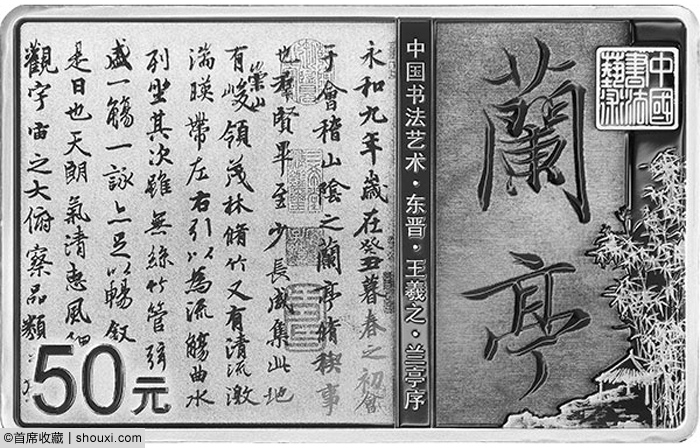 中國書法藝術
蘭亭
中国书法艺术·东晋·王羲之·兰亭序
永和九年歲在癸丑暮春之初會
于會稽山陰之蘭亭脩稧事
也羣賢畢至少長咸集此地
有崇山峻領茂林脩竹又有清流激
湍暎帶左右引以為流觴曲水
列坐其次雖無絲竹管弦
盛一觴一詠亦足以暢敘
是日也天朗氣清惠風
觀宇宙之大俯察品類
50元
@首席收藏 | shouxi.com